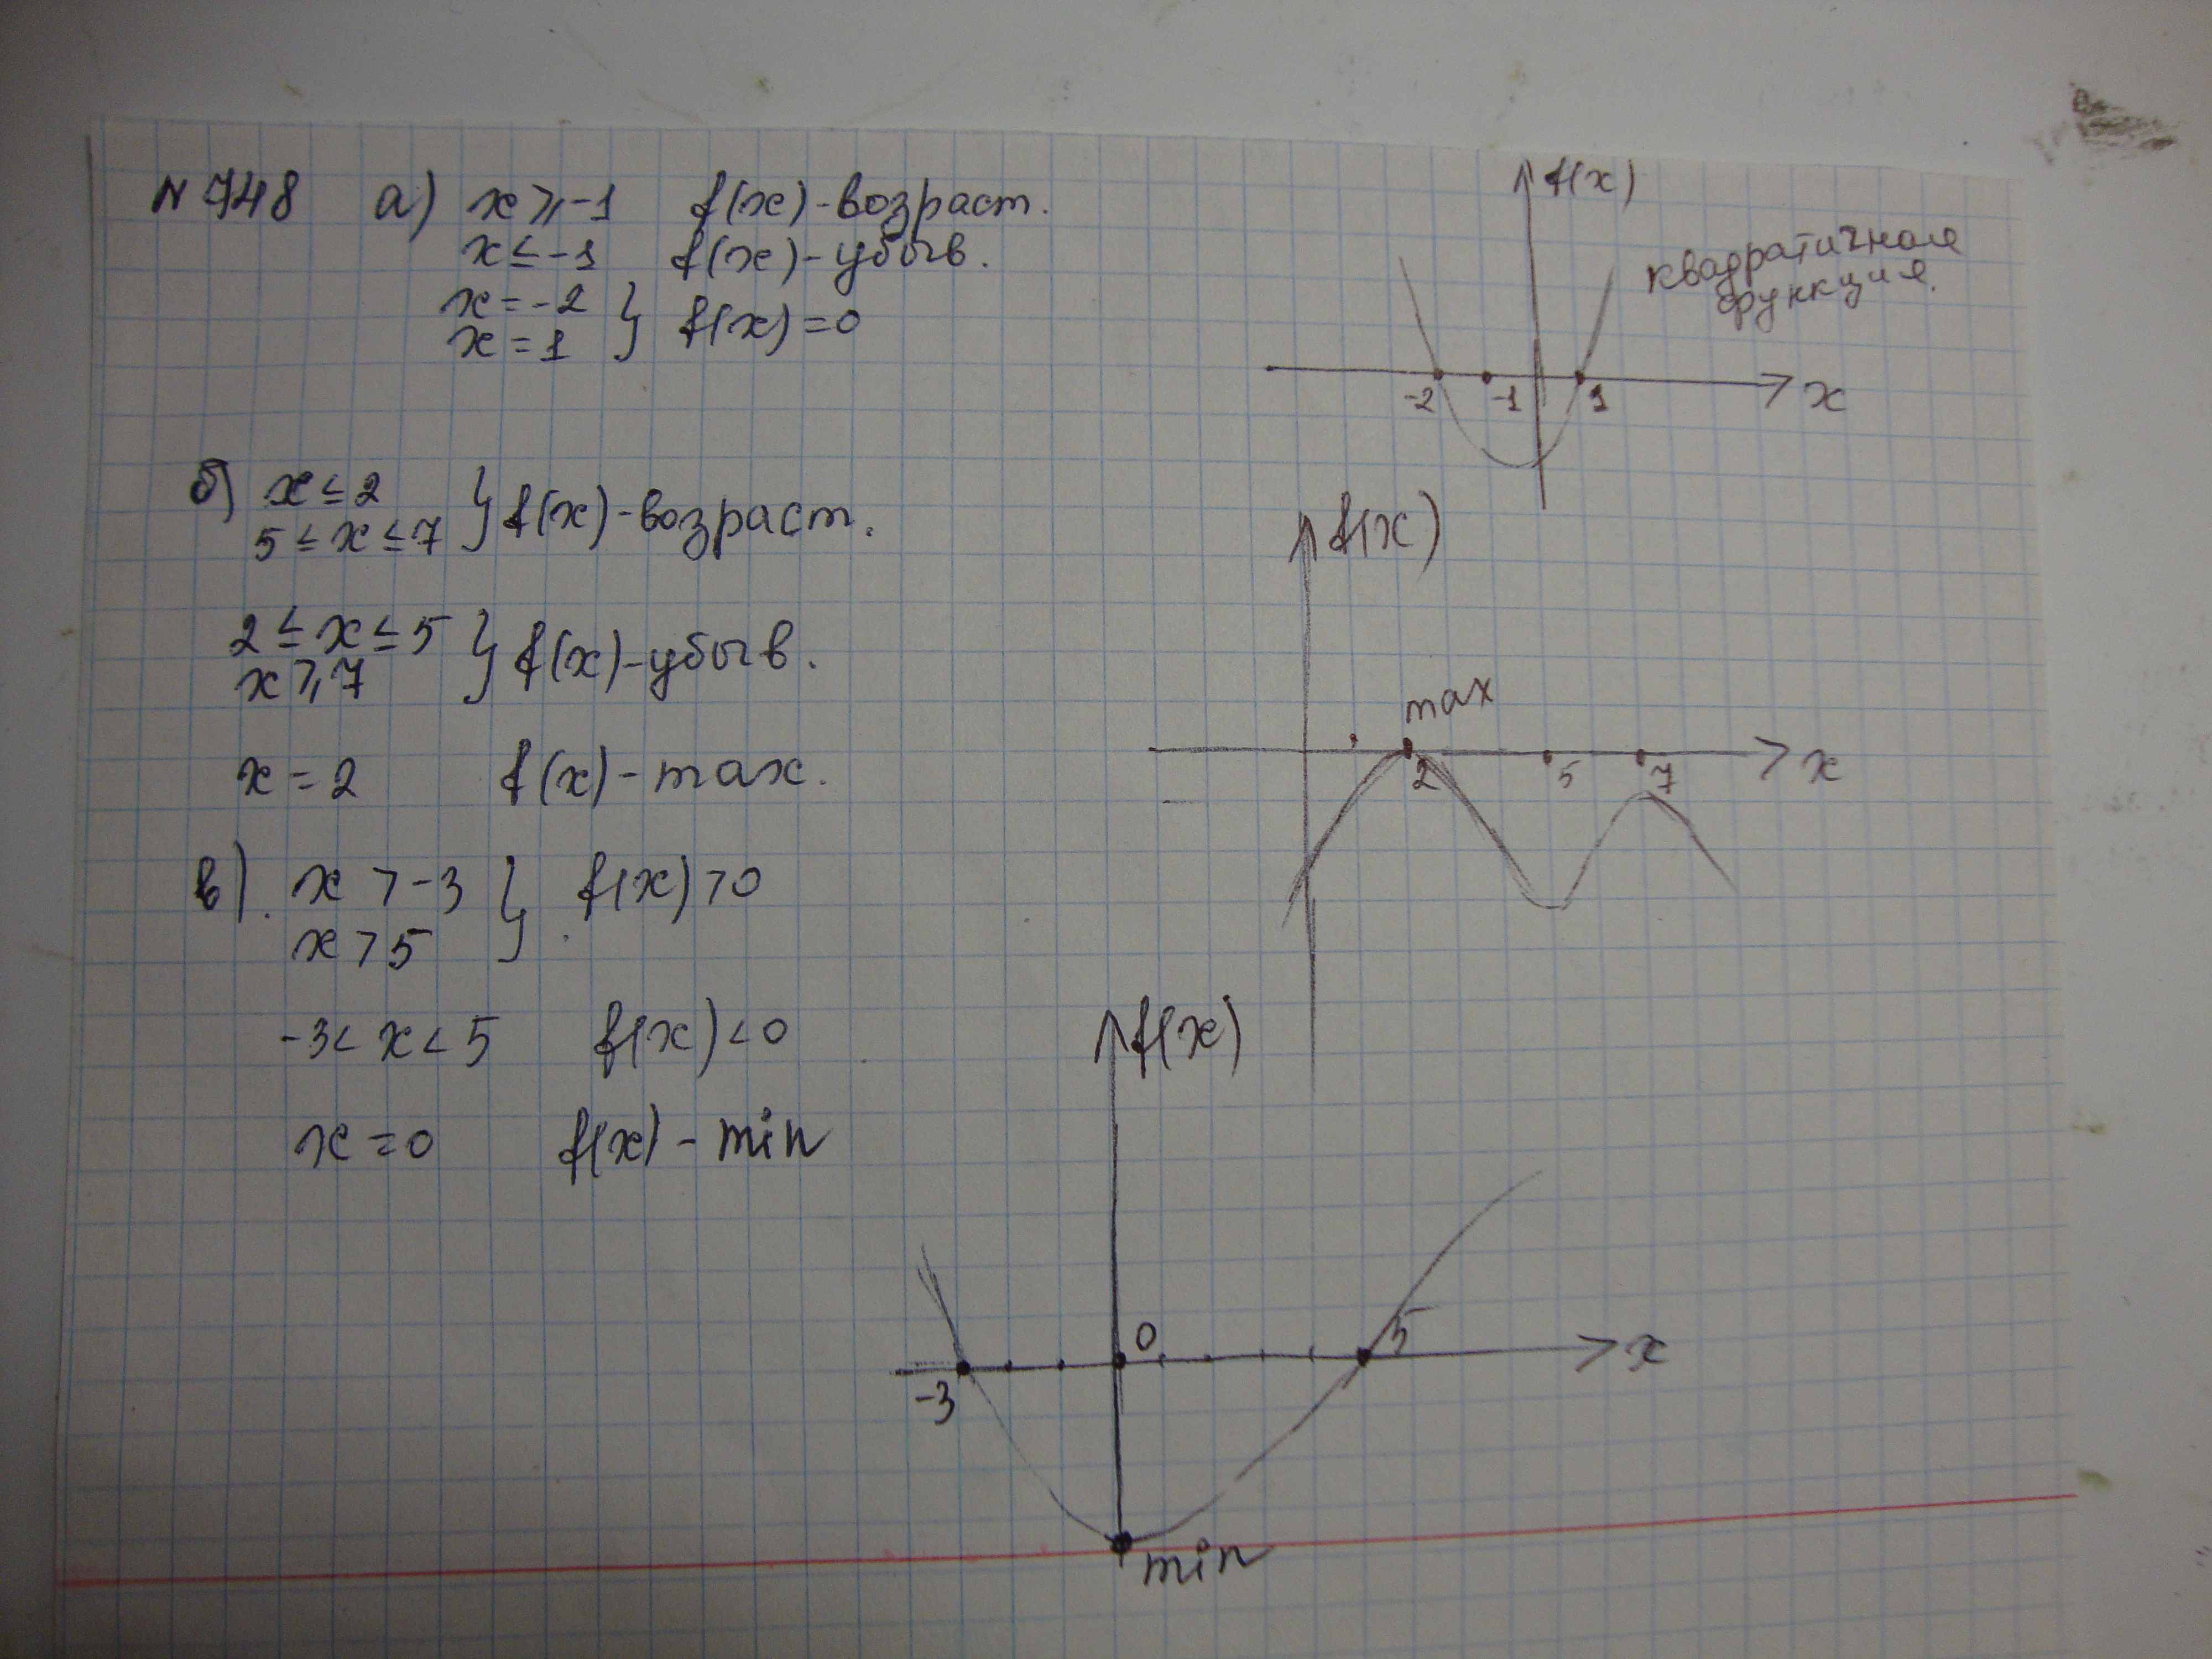 N 748 а) x ⩾ -1 f(x) - возраст.
x ≤ -1 f(x) - убыв.
x = -2
x = 1 } f(x) = 0
f(x)
квадратичная
функция.
-2 -1 1 x
б) x ≤ 2
5 ≤ x ≤ 7 } f(x) - возраст.
2 ≤ x ≤ 5
x ⩾ 7 } f(x) - убыв.
x = 2 f(x) - max.
f(x)
max
2 5 7 x
в). x > -3
x > 5 } f(x) > 0
-3 < x < 5 f(x) < 0
x = 0 f(x) - min
f(x)
0 5 x
-3
min